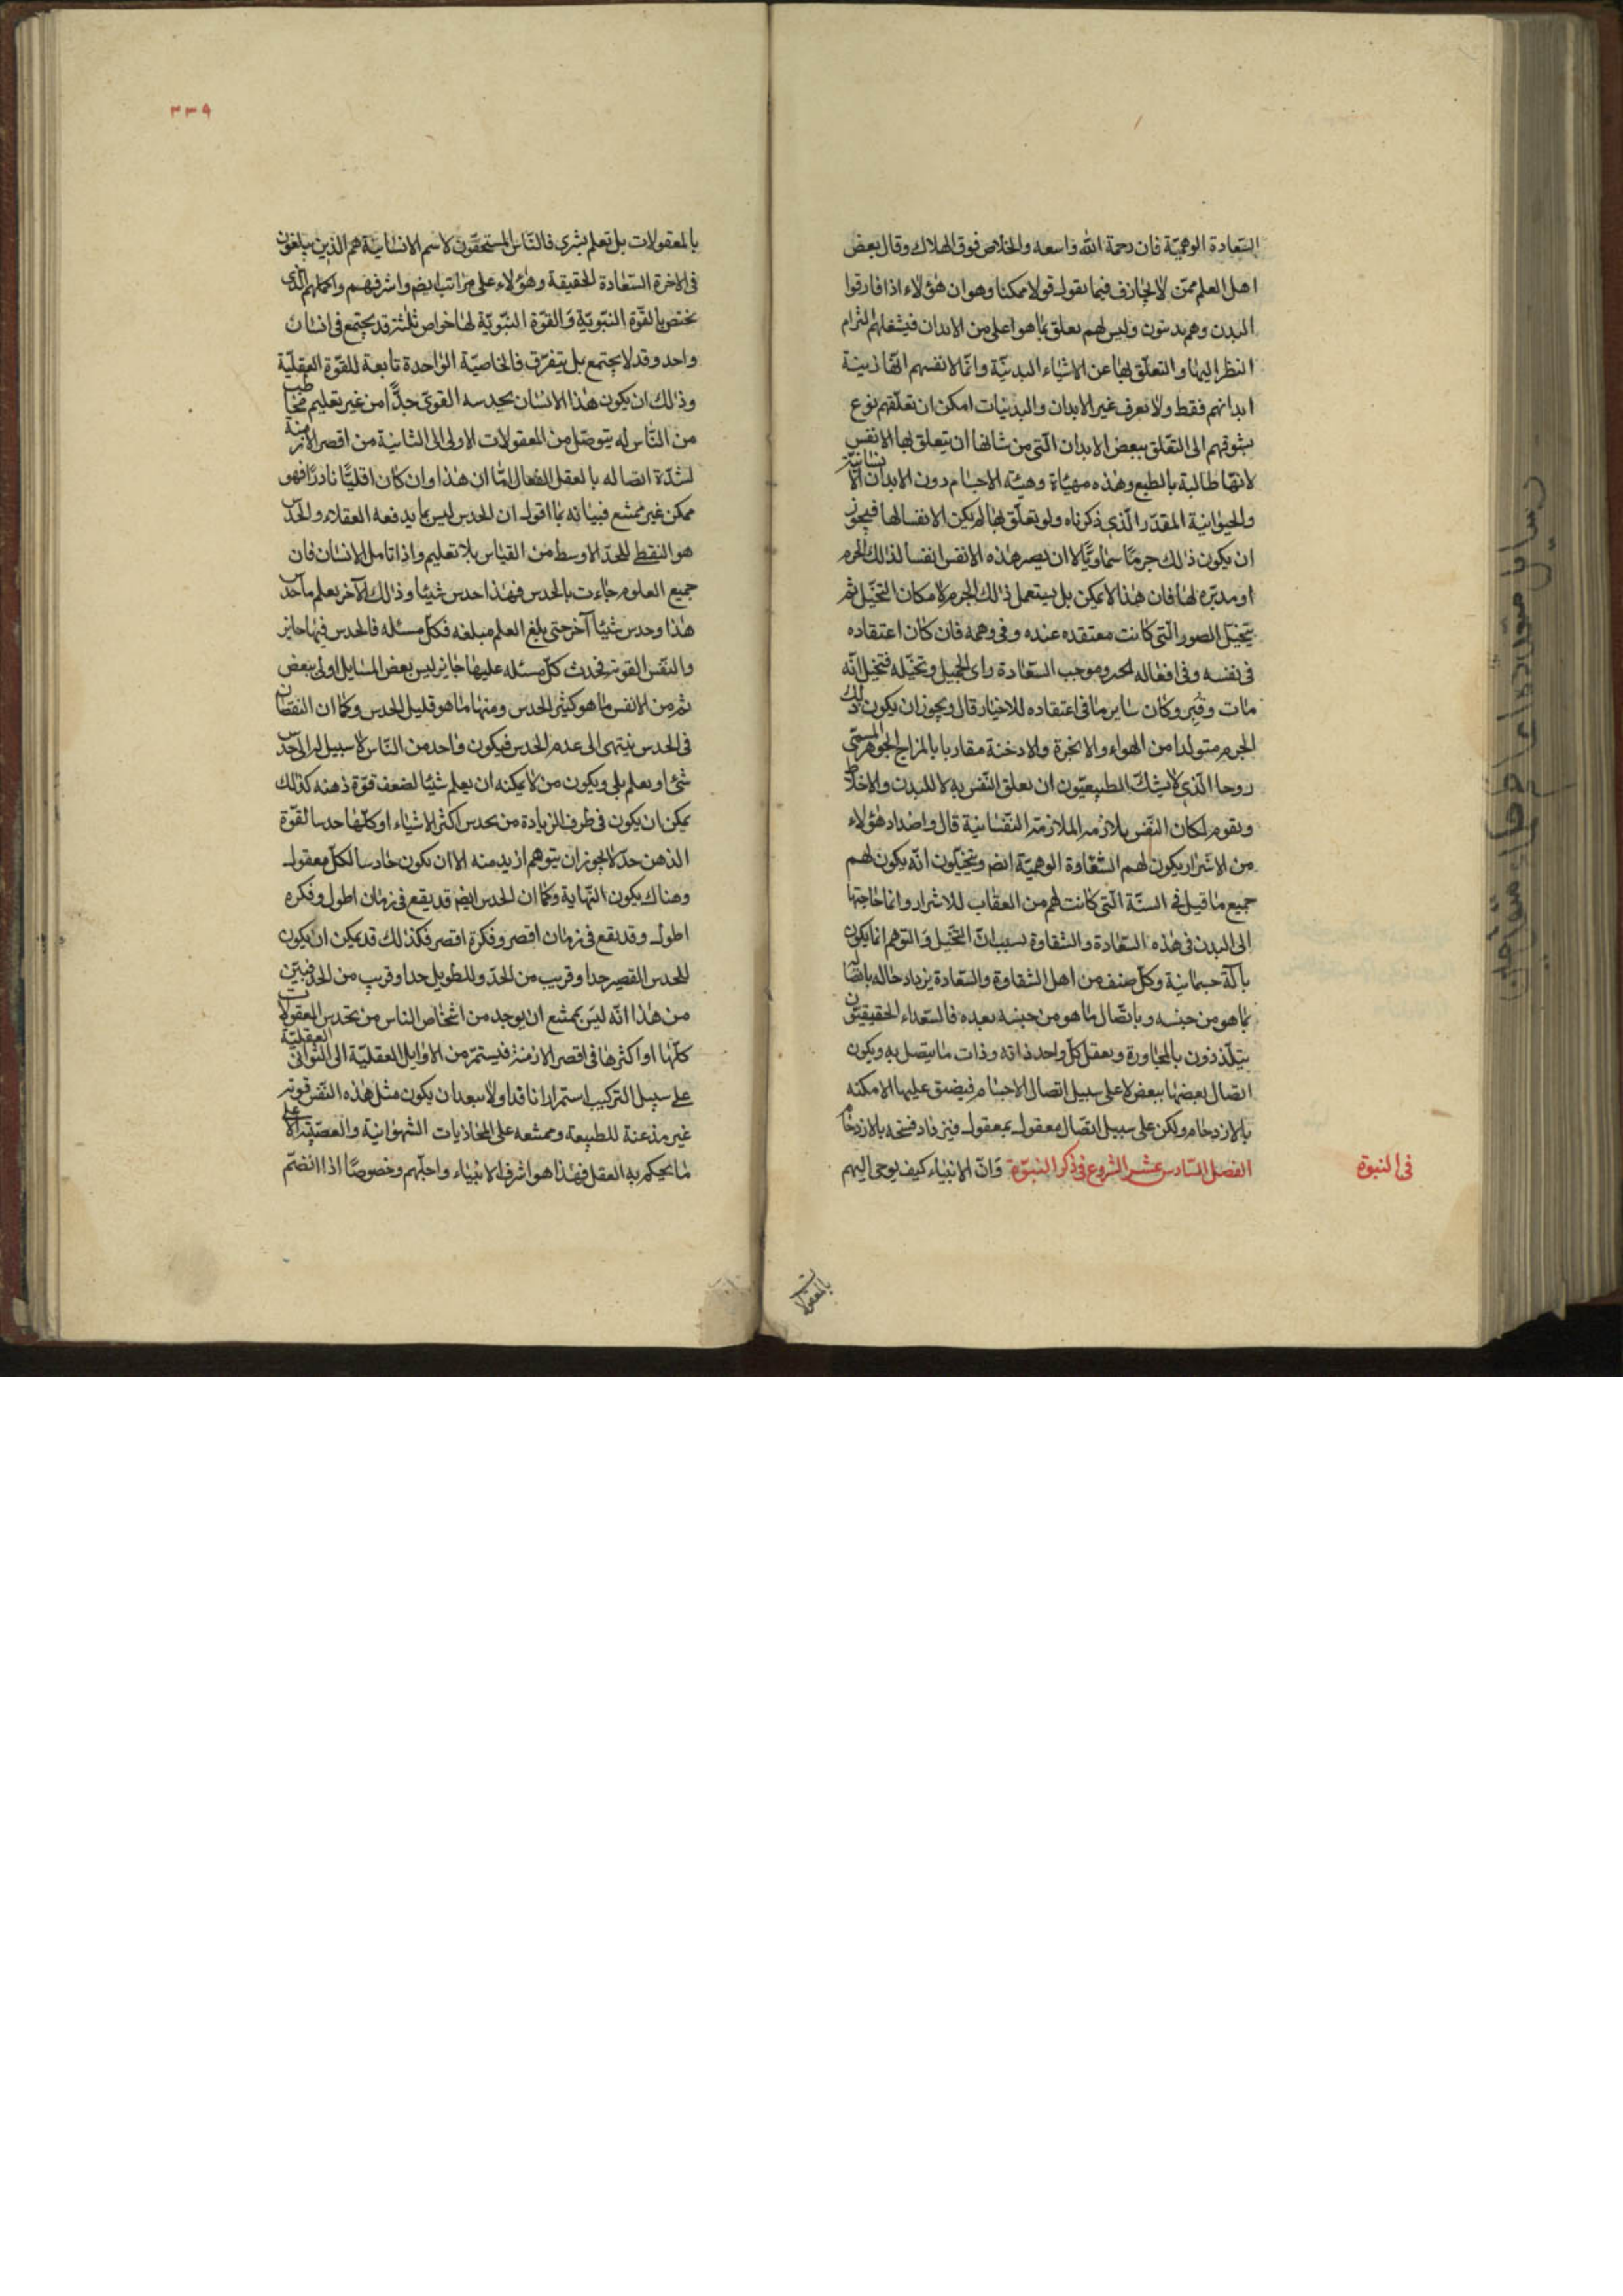 السّعادة الوهميّة فان رحمة الله واسعه والخلاص فوق الهلاك وقال بعض
اهل العلم ممّن لا يجازف فيما يقول قولا ممكنا وهو ان هؤلاء اذا فارقوا
البدن وهم بدنيون وليس لهم تعلق بما هو اعلى من الابدان فيشغلهم التزام
النظر اليها والتعلّق بها عن الاشياء البدنيّة وانّما لانفسهم انّها زينة
ابدانهم فقط ولا تعرف غير الابدان والبدنيات امكن ان تعلّقهم نوع
تشوقهم الى التعلّق ببعض الابدان الّتى من شانها ان يتعلق بها الانفس
لانّها طالبة بالطبع وهذه مهيّاة وهيئة الاجسام دون الابدان الانسانيّة
والحيوانية المقدّر الّذى ذكرناه ولو تعلّق بها لم يكن الا نفسا لها فيجوز
ان يكون ذلك جرمًا سماويًّا لا ان يصير هذه الانفس انفسا لذلك الجرم
او مدبّره لها فان هذا لا يمكن بل يستعمل ذلك الجرم لامكان التخيّل ثم
يتخيّل الصور الّتى كانت معتقده عنده وفى وهمه فان كان اعتقاده
فى نفسه وفى افعاله الخير وموجب السّعادة راى الجميل وتخيّله فتخيل انّه
مات وقبر وكان ساير ما فى اعتقاده للاخيار قال ويجوز ان يكون ذلك
الجرم متولدا من الهواء والابخرة والادخنة مقاربا بالمزاج الجوهر المسمّى
روحا الّذى لا يشكّ الطبيعيّون ان تعلق النّفس به لا للبدن والاخلاط
ويقوم لكان النّفس يلازمه الملازمة النفسانية قال واضداد هؤلاء
من الاشرار يكون لهم الشقاوة الوهميّة ايض ويتخيّلون انّه يكون لهم
جميع ما قيل فى السنّة الّتى كانت لهم من العقاب للاشرار وانما حاجتها
الى البدن فى هذه السّعادة والشقاوة بسبب انّ التخيّل والتوهم انما يكون
بآلة جسمانية وكلّ صنف من اهل الشقاوة والسّعادة يزداد حاله باتصاله
بما هو من جنسه وباتّصال ما هو من جنسه بعده فالسّعداء الحقيقيّون
يتلّذذون بالمجاورة ويعقل كلّ واحد ذاته وذات ما يتصل به ويكون
اتصال بعضها ببعض لا على سبيل اتصال الاجسام فيضيق عليها الامكنه
بالازدحام ولكن على سبيل اتصال معقول بمعقول فيزداد فسحه بالازدحام
الفصل السّادس عشر الشروع فى ذكر النبوّة وانّ الانبياء كيف يوحى اليهم
فى النبوّة
بالمعقولات
٣٣٩
بالمعقولات بل تعلم بشرى فالنّاس المستحقّون لاسم الانسانيّة هم الذين يبلغون
فى الاخرة السّعادة الحقيقة وهؤلاء على مراتب ايض واشرفهم واكملهم الّذى
يختص بالقوّة النبّويّة والقوّة النبّويّة لها خواص ثلثة قد يجتمع فى انسان
واحد وقد لا يجتمع بل يتفرّق فالخاصيّة الواحدة تابعة للقوّة العقليّة
وذلك ان يكون هذا الانسان بحدسه القوىّ جدًّا من غير تعليم مخاطب
من النّاس له يتوصّل من المعقولات الاولى الى الثانية من اقصر الازمنة
لشدّة اتصاله بالعقل الفعال امّا ان هذا وان كان اقليًّا نادرًا فهو
ممكن غير ممتنع فبيانه بما اقول ان الحدس ليس بما يدفعه العقلاء والحدس
هو النقط للحدّ الاوسط من القياس بلا تعليم واذا تامل الانسان فان
جميع العلوم جاءت بالحدس فهذا حدس شيئا وذلك الآخر يعلم ما حدس
هذا وحدس شيئا آخر حتى بلغ العلم مبلغه فكلّ مسئله فالحدس فيها جايز
والنّفس القوّة فحدث كلّ مسئله عليها جايز ليس بعض المسايل اولى ببعض
ثم من الانفس ما هو كثير الحدس ومنها ما هو قليل الحدس وكما ان النقصان
فى الحدس ينتهى الى عدم الحدس فيكون واحد من النّاس لا سبيل له الى حدس
شئ او يعلم بلى ويكون من لا يمكنه ان يعلم شيئا لضعف قوّة ذهنه كذلك
يمكن ان يكون فى طرف الزيادة من يحدس اكثر الاشياء او كلّها حدسا لقوّة
الذهن حدّ لا يجوز ان يتوهم ازيد منه الا ان يكون حادسا لكلّ معقول
وهناك يكون النّهاية وكما ان الحدس ايض قد يقع فى زمان اطول وفكره
اطول وقد يقع فى زمان اقصر وفكرة اقصر فكذلك قد يمكن ان يكون
للحدس القصير جدا وقريب من الحدّ وللطويل جدا وقريب من الحدّ فتبيّن
من هذا انّه ليس بممتنع ان يوجد من اشخاص الناس من يحدس المعقولات
كلّها او اكثرها فى اقصر الازمنة فيستمرّ من الاوايل العقليّة الى الثوانى العقليّة
على سبيل التركيب استمرارا نافدا ولا يبعد ان يكون مثل هذه النّفس قويّة
غير مذعنة للطبيعة وممتنعه على المجاذبات الشهوانية والغضبيّة الا على
ما يحكم به العقل فهذا هو اشرف الانبياء واجلّهم وخصوصًا اذا انضمّ